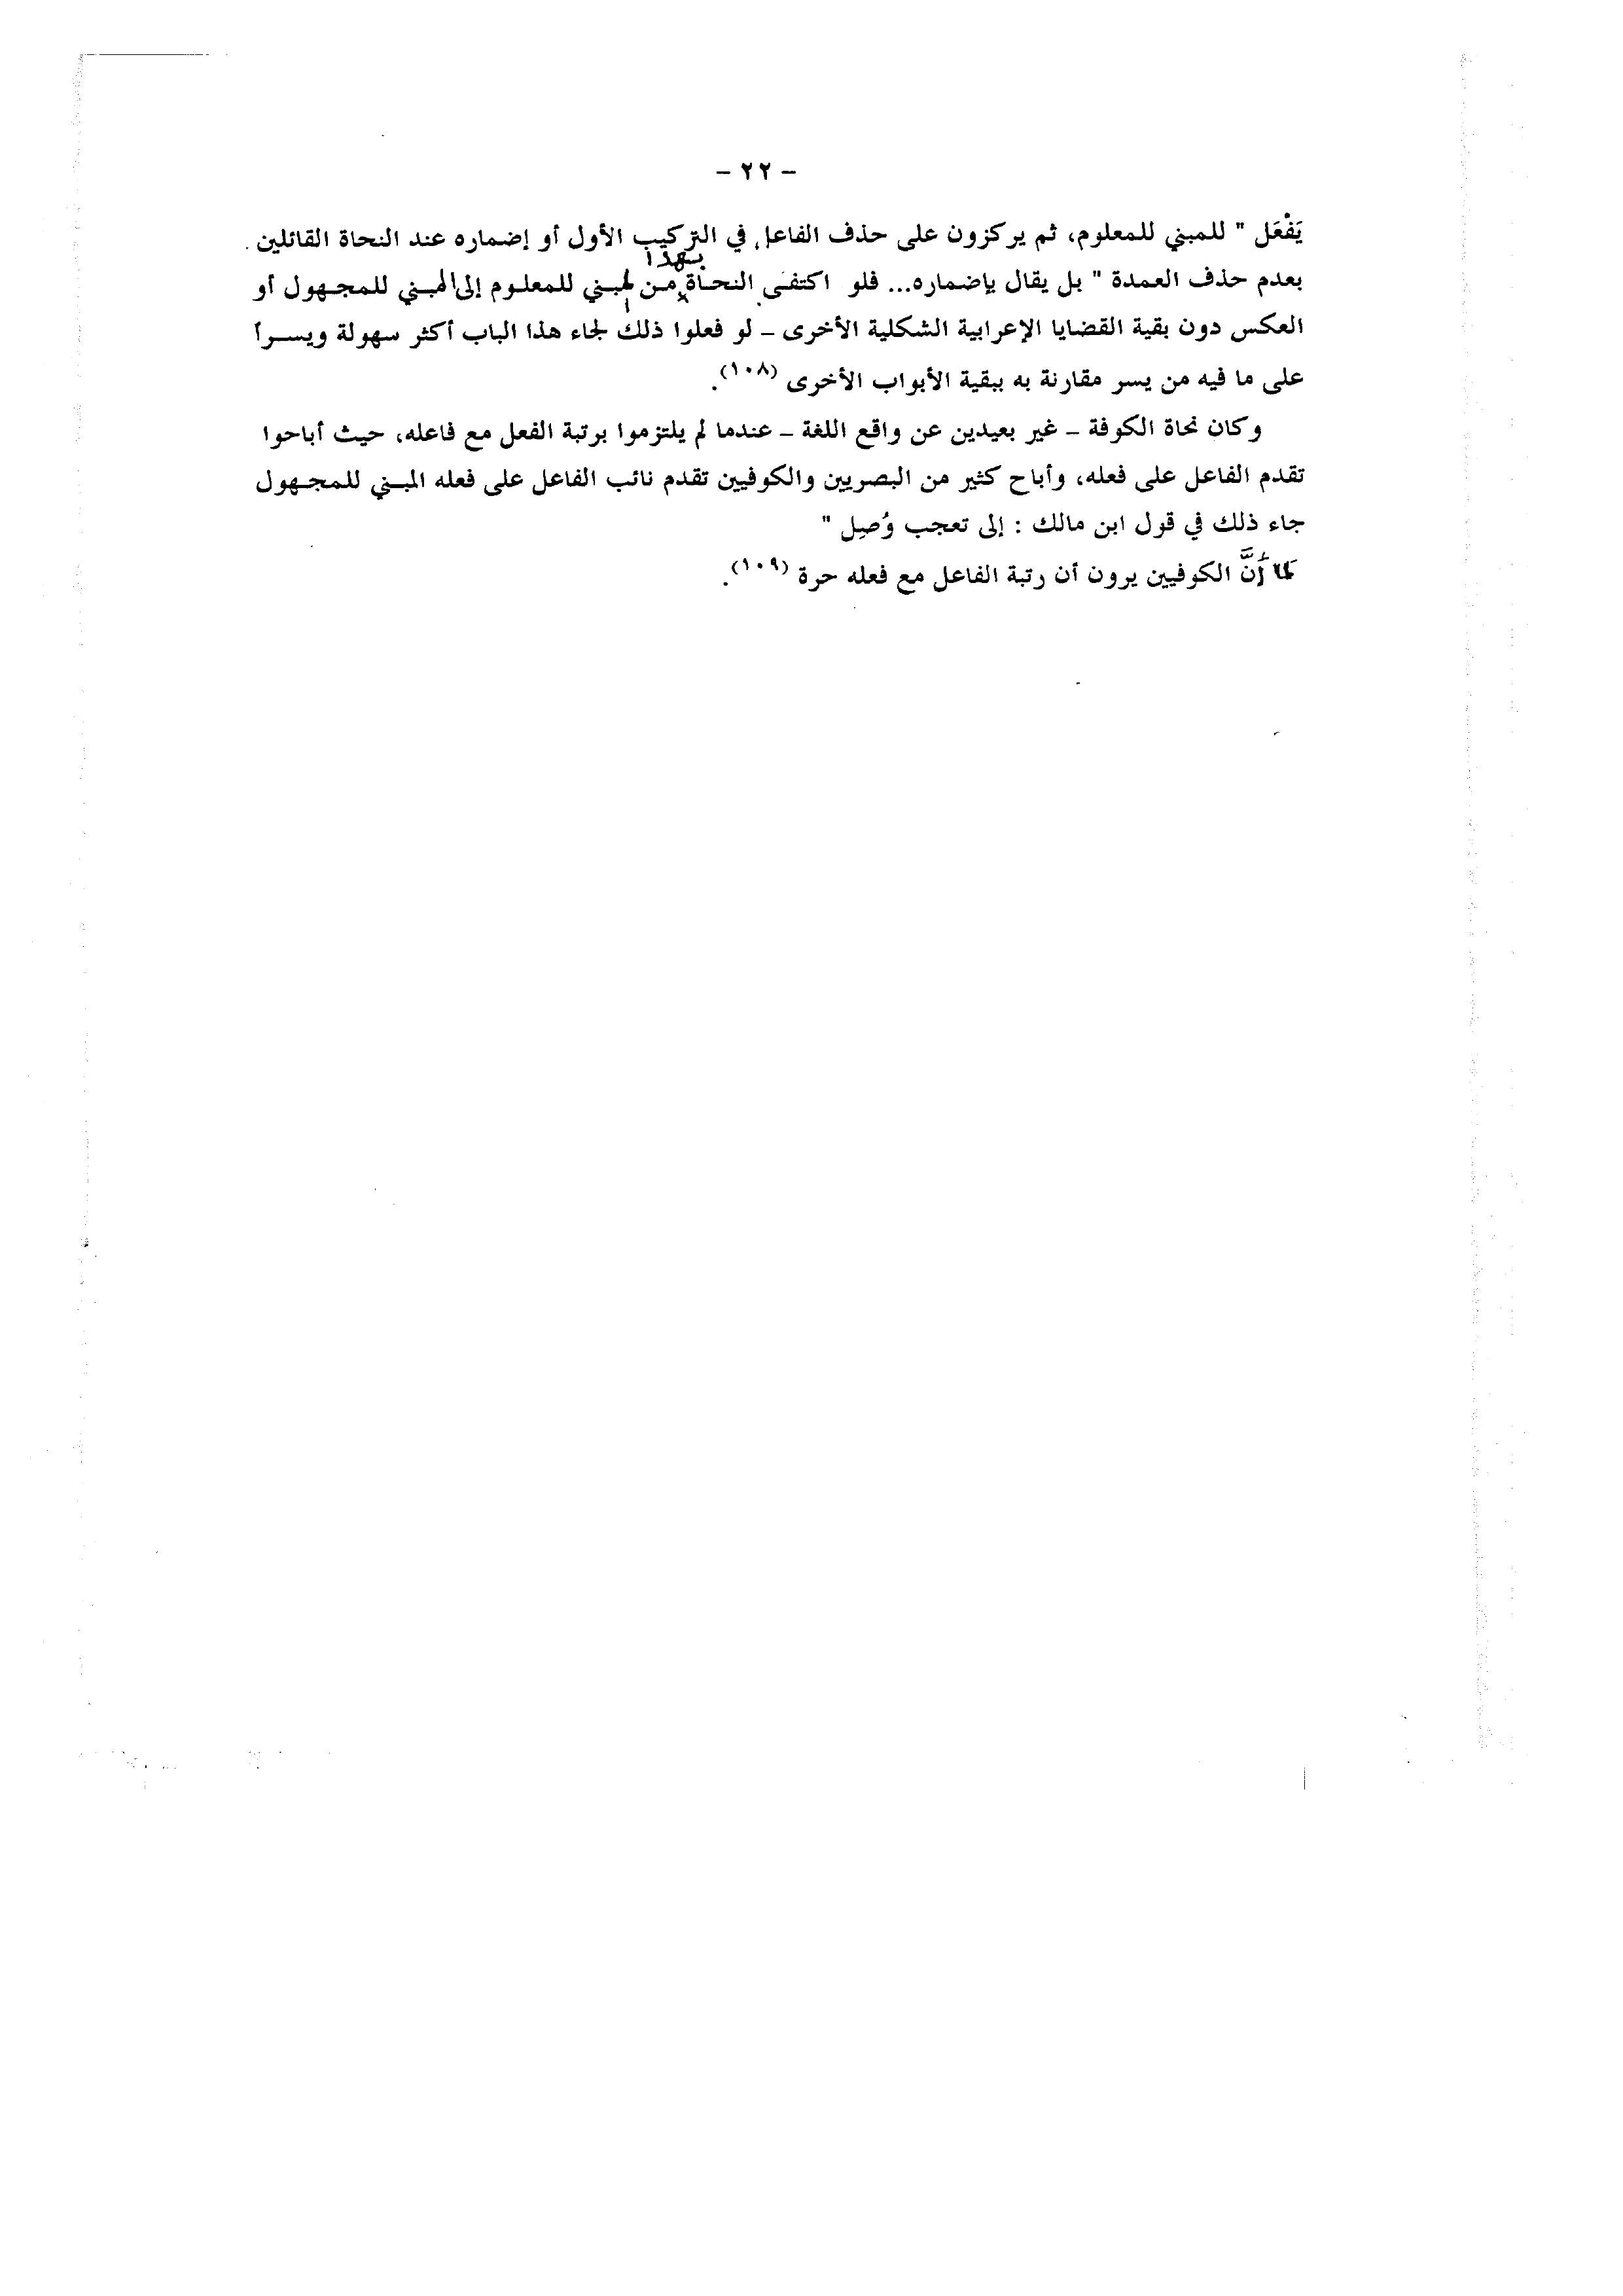 - ٢٢ -
يَفْعَل " للمبني للمعلوم، ثم يركزون على حذف الفاعل في التركيب الأول أو إضماره عند النحاة القائلين
بعدم حذف العمدة " بل يقال بإضماره... فلو اكتفى النحاة بهذا من المبني للمعلوم إلى المبني للمجهول أو
العكس دون بقية القضايا الإعرابية الشكلية الأخرى – لو فعلوا ذلك لجاء هذا الباب أكثر سهولة ويسراً
على ما فيه من يسر مقارنة به ببقية الأبواب الأخرى (١٠٨).
وكان نحاة الكوفة – غير بعيدين عن واقع اللغة – عندما لم يلتزموا برتبة الفعل مع فاعله، حيث أباحوا
تقدم الفاعل على فعله، وأباح كثير من البصريين والكوفيين تقدم نائب الفاعل على فعله المبني للمجهول
جاء ذلك في قول ابن مالك : إلى تعجب وُصِل "
أَنَّ الكوفيين يرون أن رتبة الفاعل مع فعله حرة (١٠٩).